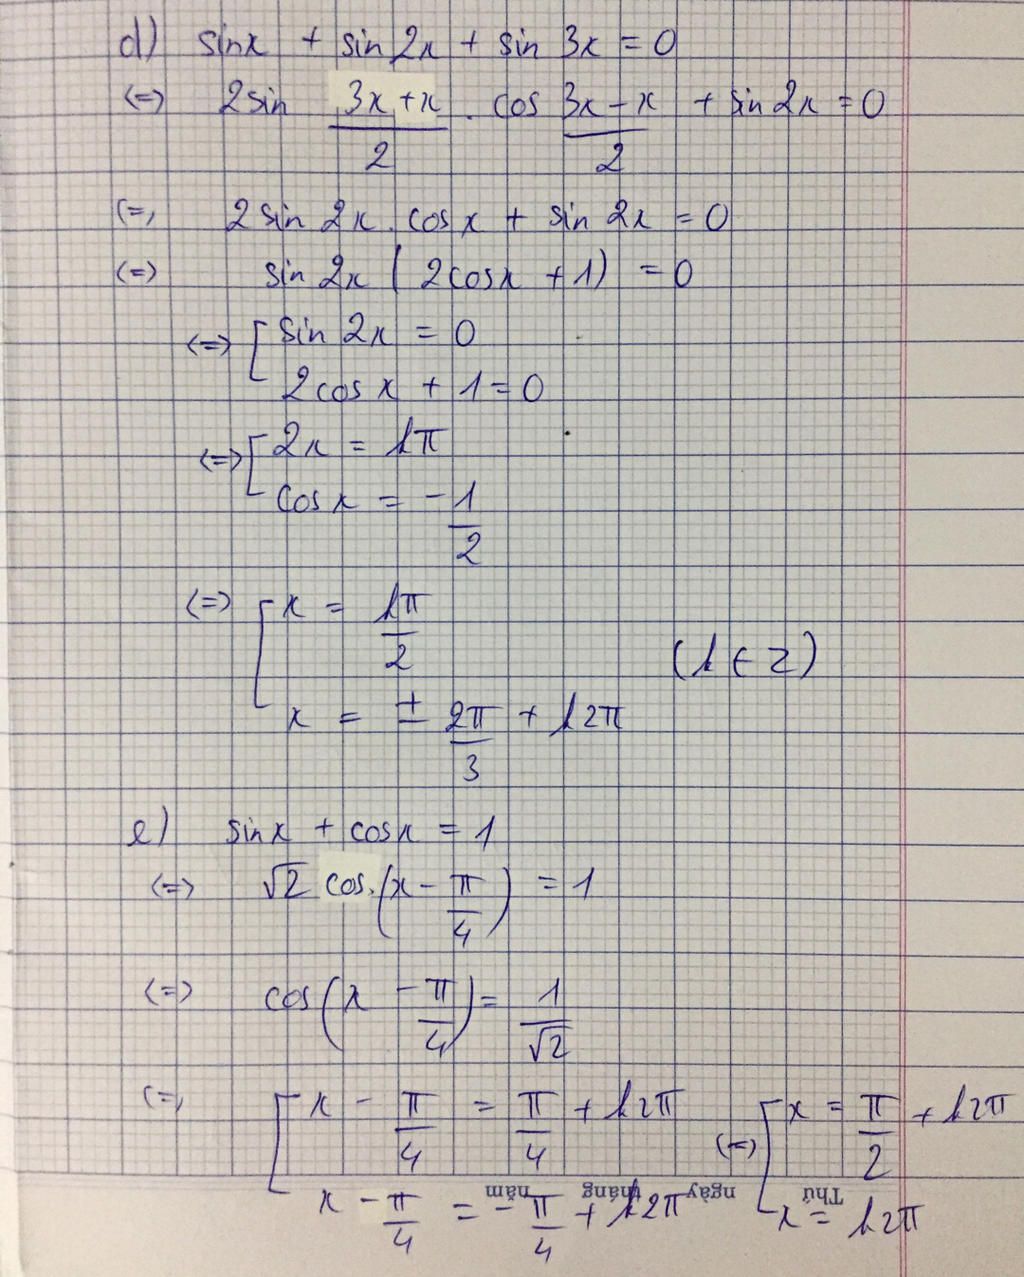 d) sinx + sin 2x + sin 3x = 0
<=> 2sin (3x+x)/2 . cos (3x-x)/2 + sin 2x = 0
<=> 2 sin 2x . cosx + sin 2x = 0
<=> sin 2x ( 2cosx + 1) = 0
<=> [ sin 2x = 0
2cosx + 1 = 0
<=> [ 2x = kπ
cosx = -1/2
<=> [ x = kπ/2
(k ∈ Z)
x = ± 2π/3 + k2π
e) sinx + cosx = 1
<=> √2 cos.(x - π/4) = 1
<=> cos(x - π/4) = 1/√2
<=> [ x - π/4 = π/4 + k2π <=> [ x = π/2 + k2π
x - π/4 = -π/4 + k2π x = k2π
Thứ ngày tháng năm